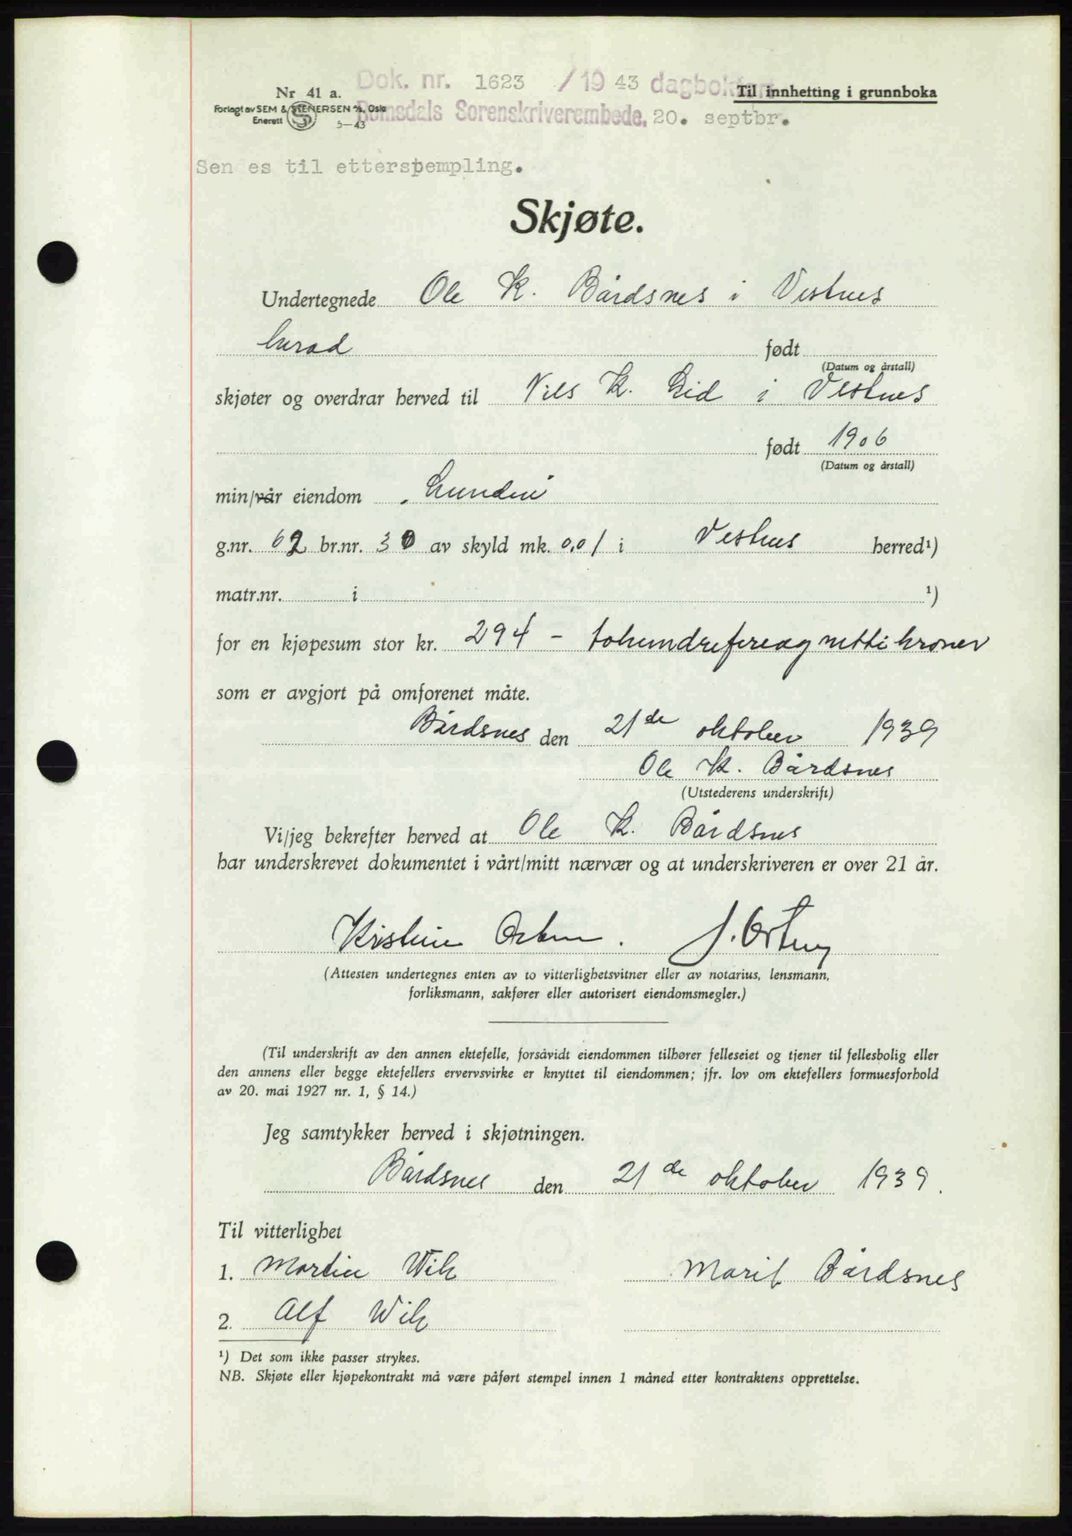 Dok. nr. 1623 /19 43 dagbokført
Nr 41 a. Til innhefting i grunnboka
Forlagt av SEM & STENERSEN A/S, Oslo
Enerett 5-43
Romsdals Sorenskriverembede, 20. septbr.
Sen es til etterstempling.
Skjøte.
Undertegnede Ole K. Bårdsnes i Vestnes
herad født
(Datum og årstall)
skjøter og overdrar herved til Nils K. Eid i Vestnes
født 1906
(Datum og årstall)
min/vår eiendom
g.nr. 62 br.nr. 30 av skyld mk. 0,01 i Vestnes herred¹)
matr.nr. i ¹)
for en kjøpesum stor kr. 294 - tohundrefireognitti kroner
som er avgjort på omforenet måte.
Bårdsnes den 21de oktober 1939
Ole K. Bårdsnes
(Utstederens underskrift)
Vi/jeg bekrefter herved at Ole K. Bårdsnes
har underskrevet dokumentet i vårt/mitt nærvær og at underskriveren er over 21 år.
(Attesten undertegnes enten av to vitterlighetsvitner eller av notarius, lensmann,
forliksmann, sakfører eller autorisert eiendomsmegler.)
(Til underskrift av den annen ektefelle, forsåvidt eiendommen tilhører felleseiet og tjener til fellesbolig eller
den annens eller begge ektefellers ervervsvirke er knyttet til eiendommen; jfr. lov om ektefellers formuesforhold
av 20. mai 1927 nr. 1, § 14.)
Jeg samtykker herved i skjøtningen.
Bårdsnes den 21de oktober 1939.
Til vitterlighet
1. Martin Wik Marit Bårdsnes
2. Alf Wik
¹) Det som ikke passer strykes.
NB. Skjøte eller kjøpekontrakt må være påført stempel innen 1 måned etter kontraktens opprettelse.